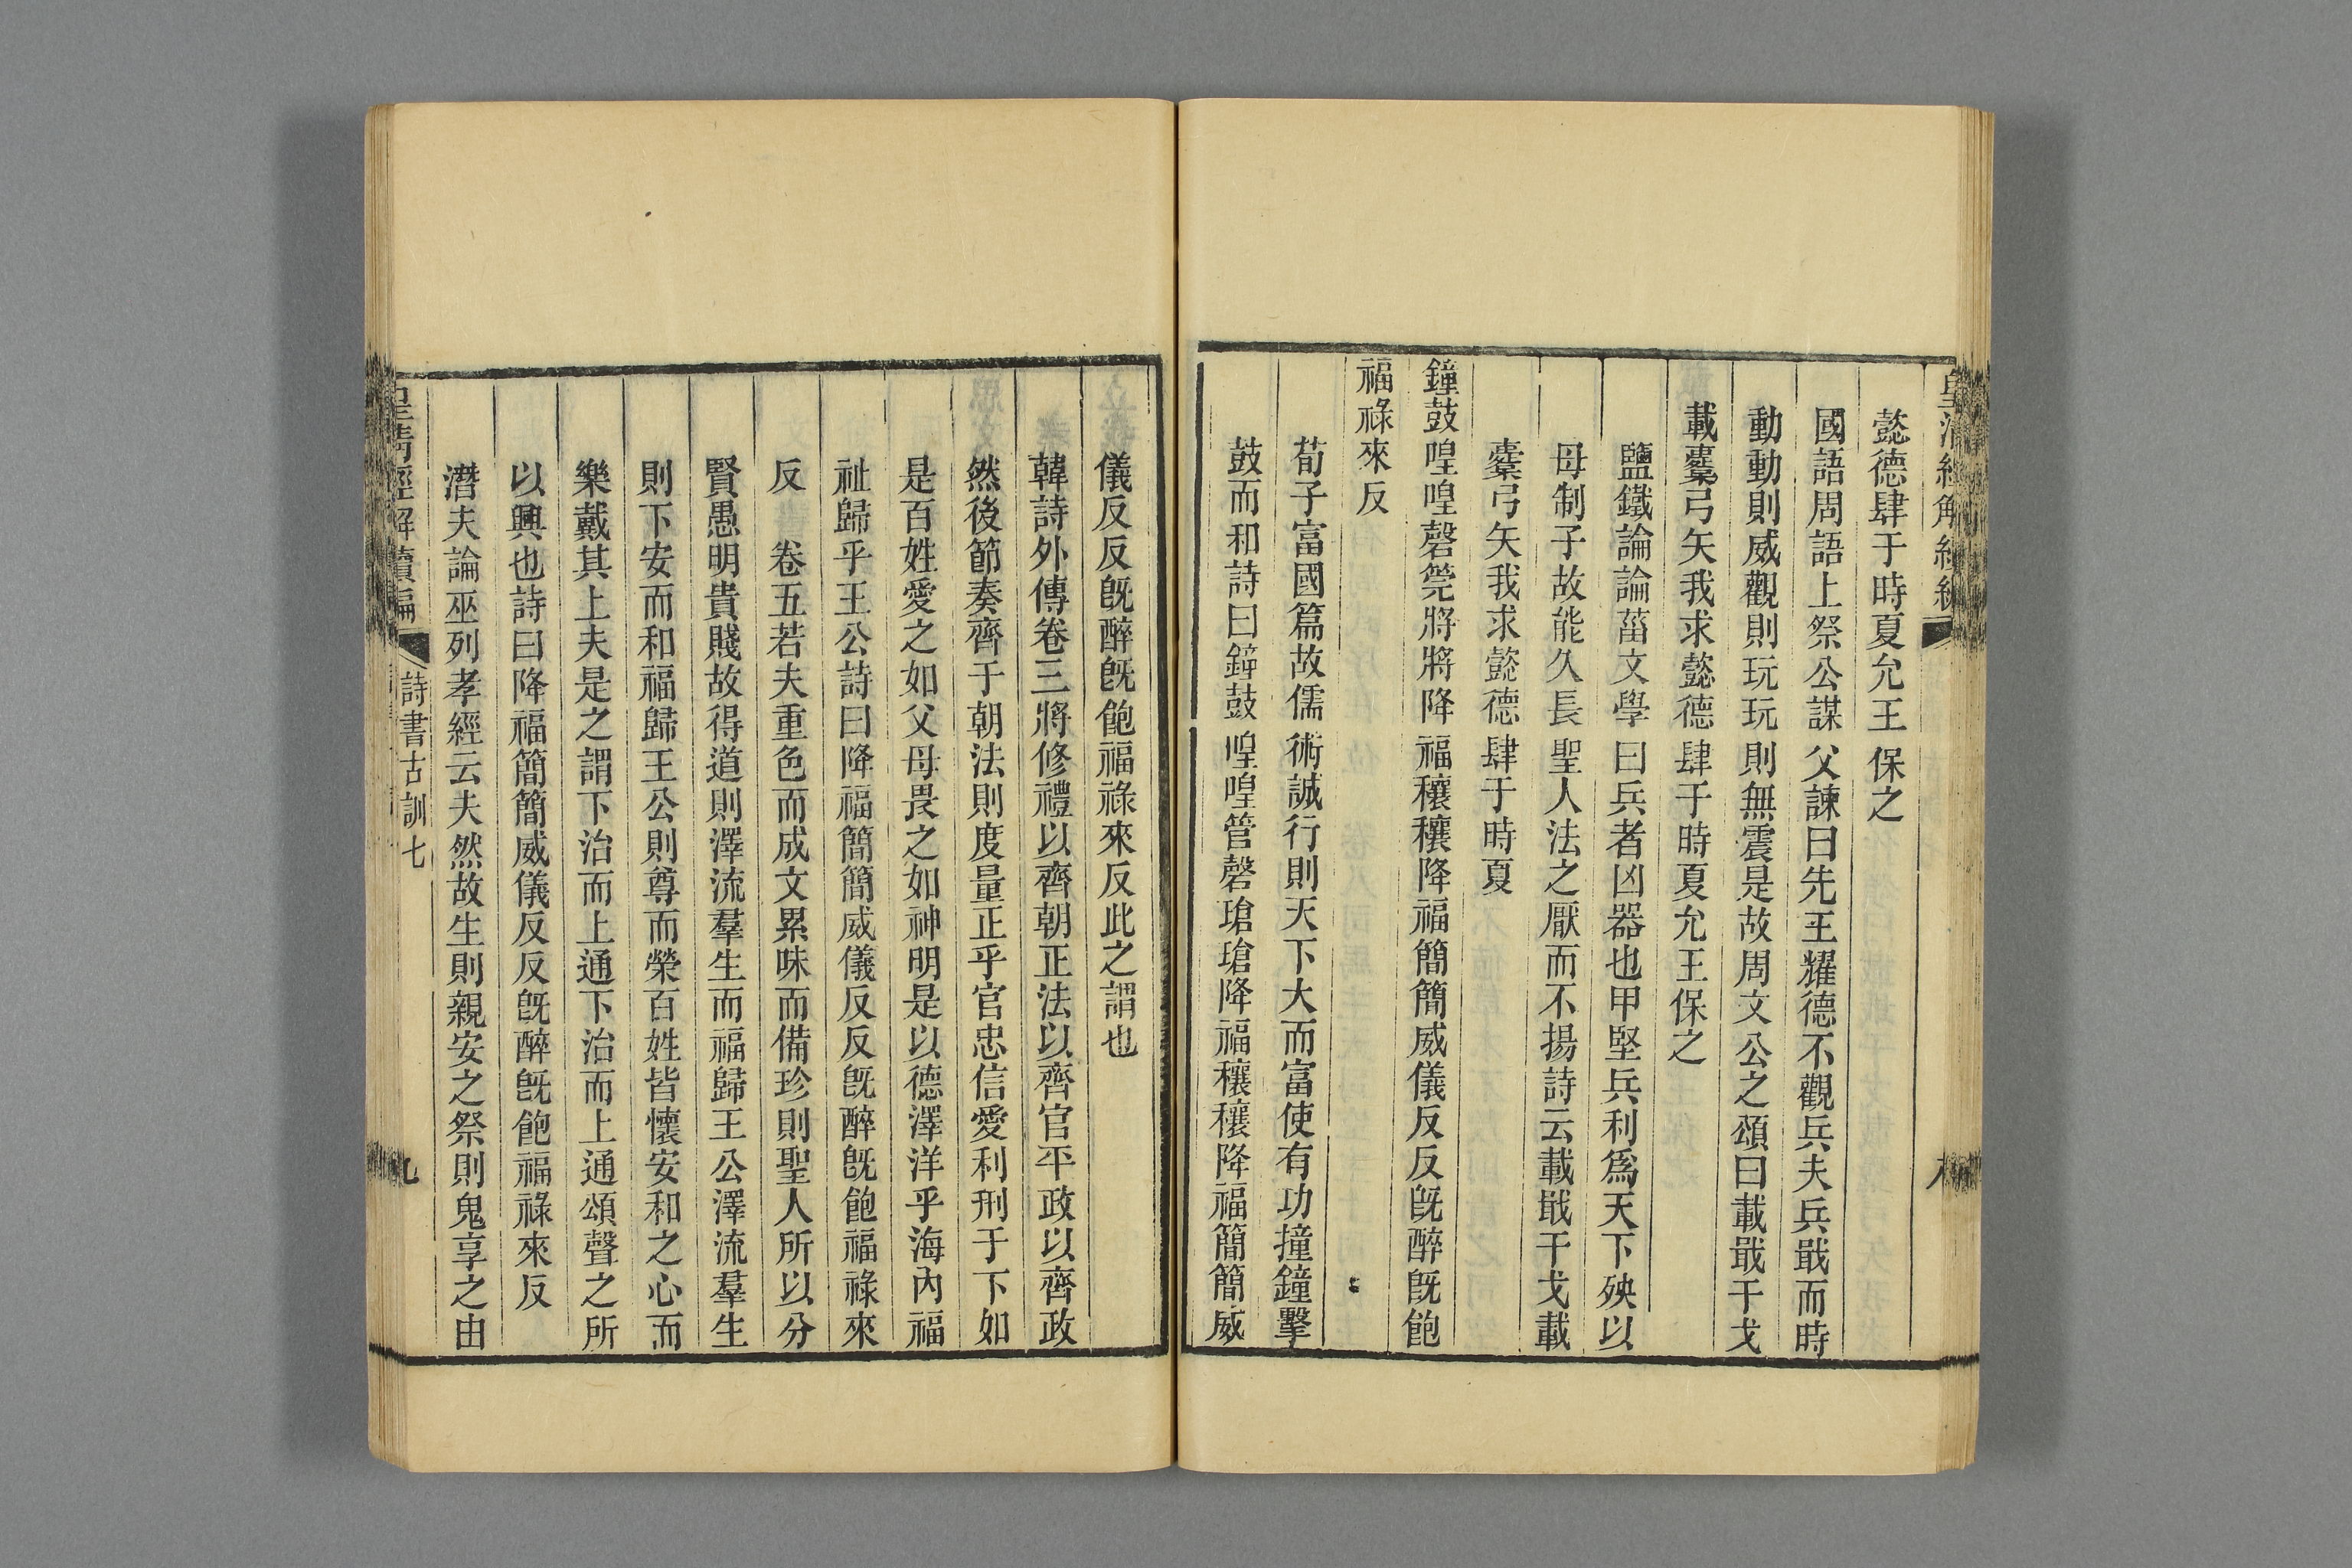 懿德肆于時夏允王保之
國語周語上祭公謀父諫曰先王耀德不觀兵夫兵戢而時
動動則威觀則玩玩則無震是故周文公之頌曰載戢干戈
載櫜弓矢我求懿德肆于時夏允王保之
鹽鐵論論菑文學曰兵者凶器也甲堅兵利爲天下殃以
母制子故能久長聖人法之厭而不揚詩云載戢干戈載
櫜弓矢我求懿德肆于時夏
鐘鼓喤喤磬筦將將降福穰穰降福簡簡威儀反反旣醉旣飽
福祿來反
荀子富國篇故儒術誠行則天下大而富使有功撞鐘擊
鼓而和詩曰鐘鼓喤喤管磬瑲瑲降福穰穰降福簡簡威
儀反反旣醉旣飽福祿來反此之謂也
韓詩外傳卷三將修禮以齊朝正法以齊官平政以齊政
然後節奏齊于朝法則度量正乎官忠信愛利刑于下如
是百姓愛之如父母畏之如神明是以德澤洋乎海內福
祉歸乎王公詩曰降福簡簡威儀反反旣醉旣飽福祿來
反 卷五若夫重色而成文累味而備珍則聖人所以分
賢愚明貴賤故得道則澤流羣生而福歸王公澤流羣生
則下安而和福歸王公則尊而榮百姓皆懷安和之心而
樂戴其上夫是之謂下治而上通下治而上通頌聲之所
以興也詩曰降福簡簡威儀反反旣醉旣飽福祿來反
潛夫論巫列孝經云夫然故生則親安之祭則鬼享之由
皇清經解續編 詩書古訓七 九